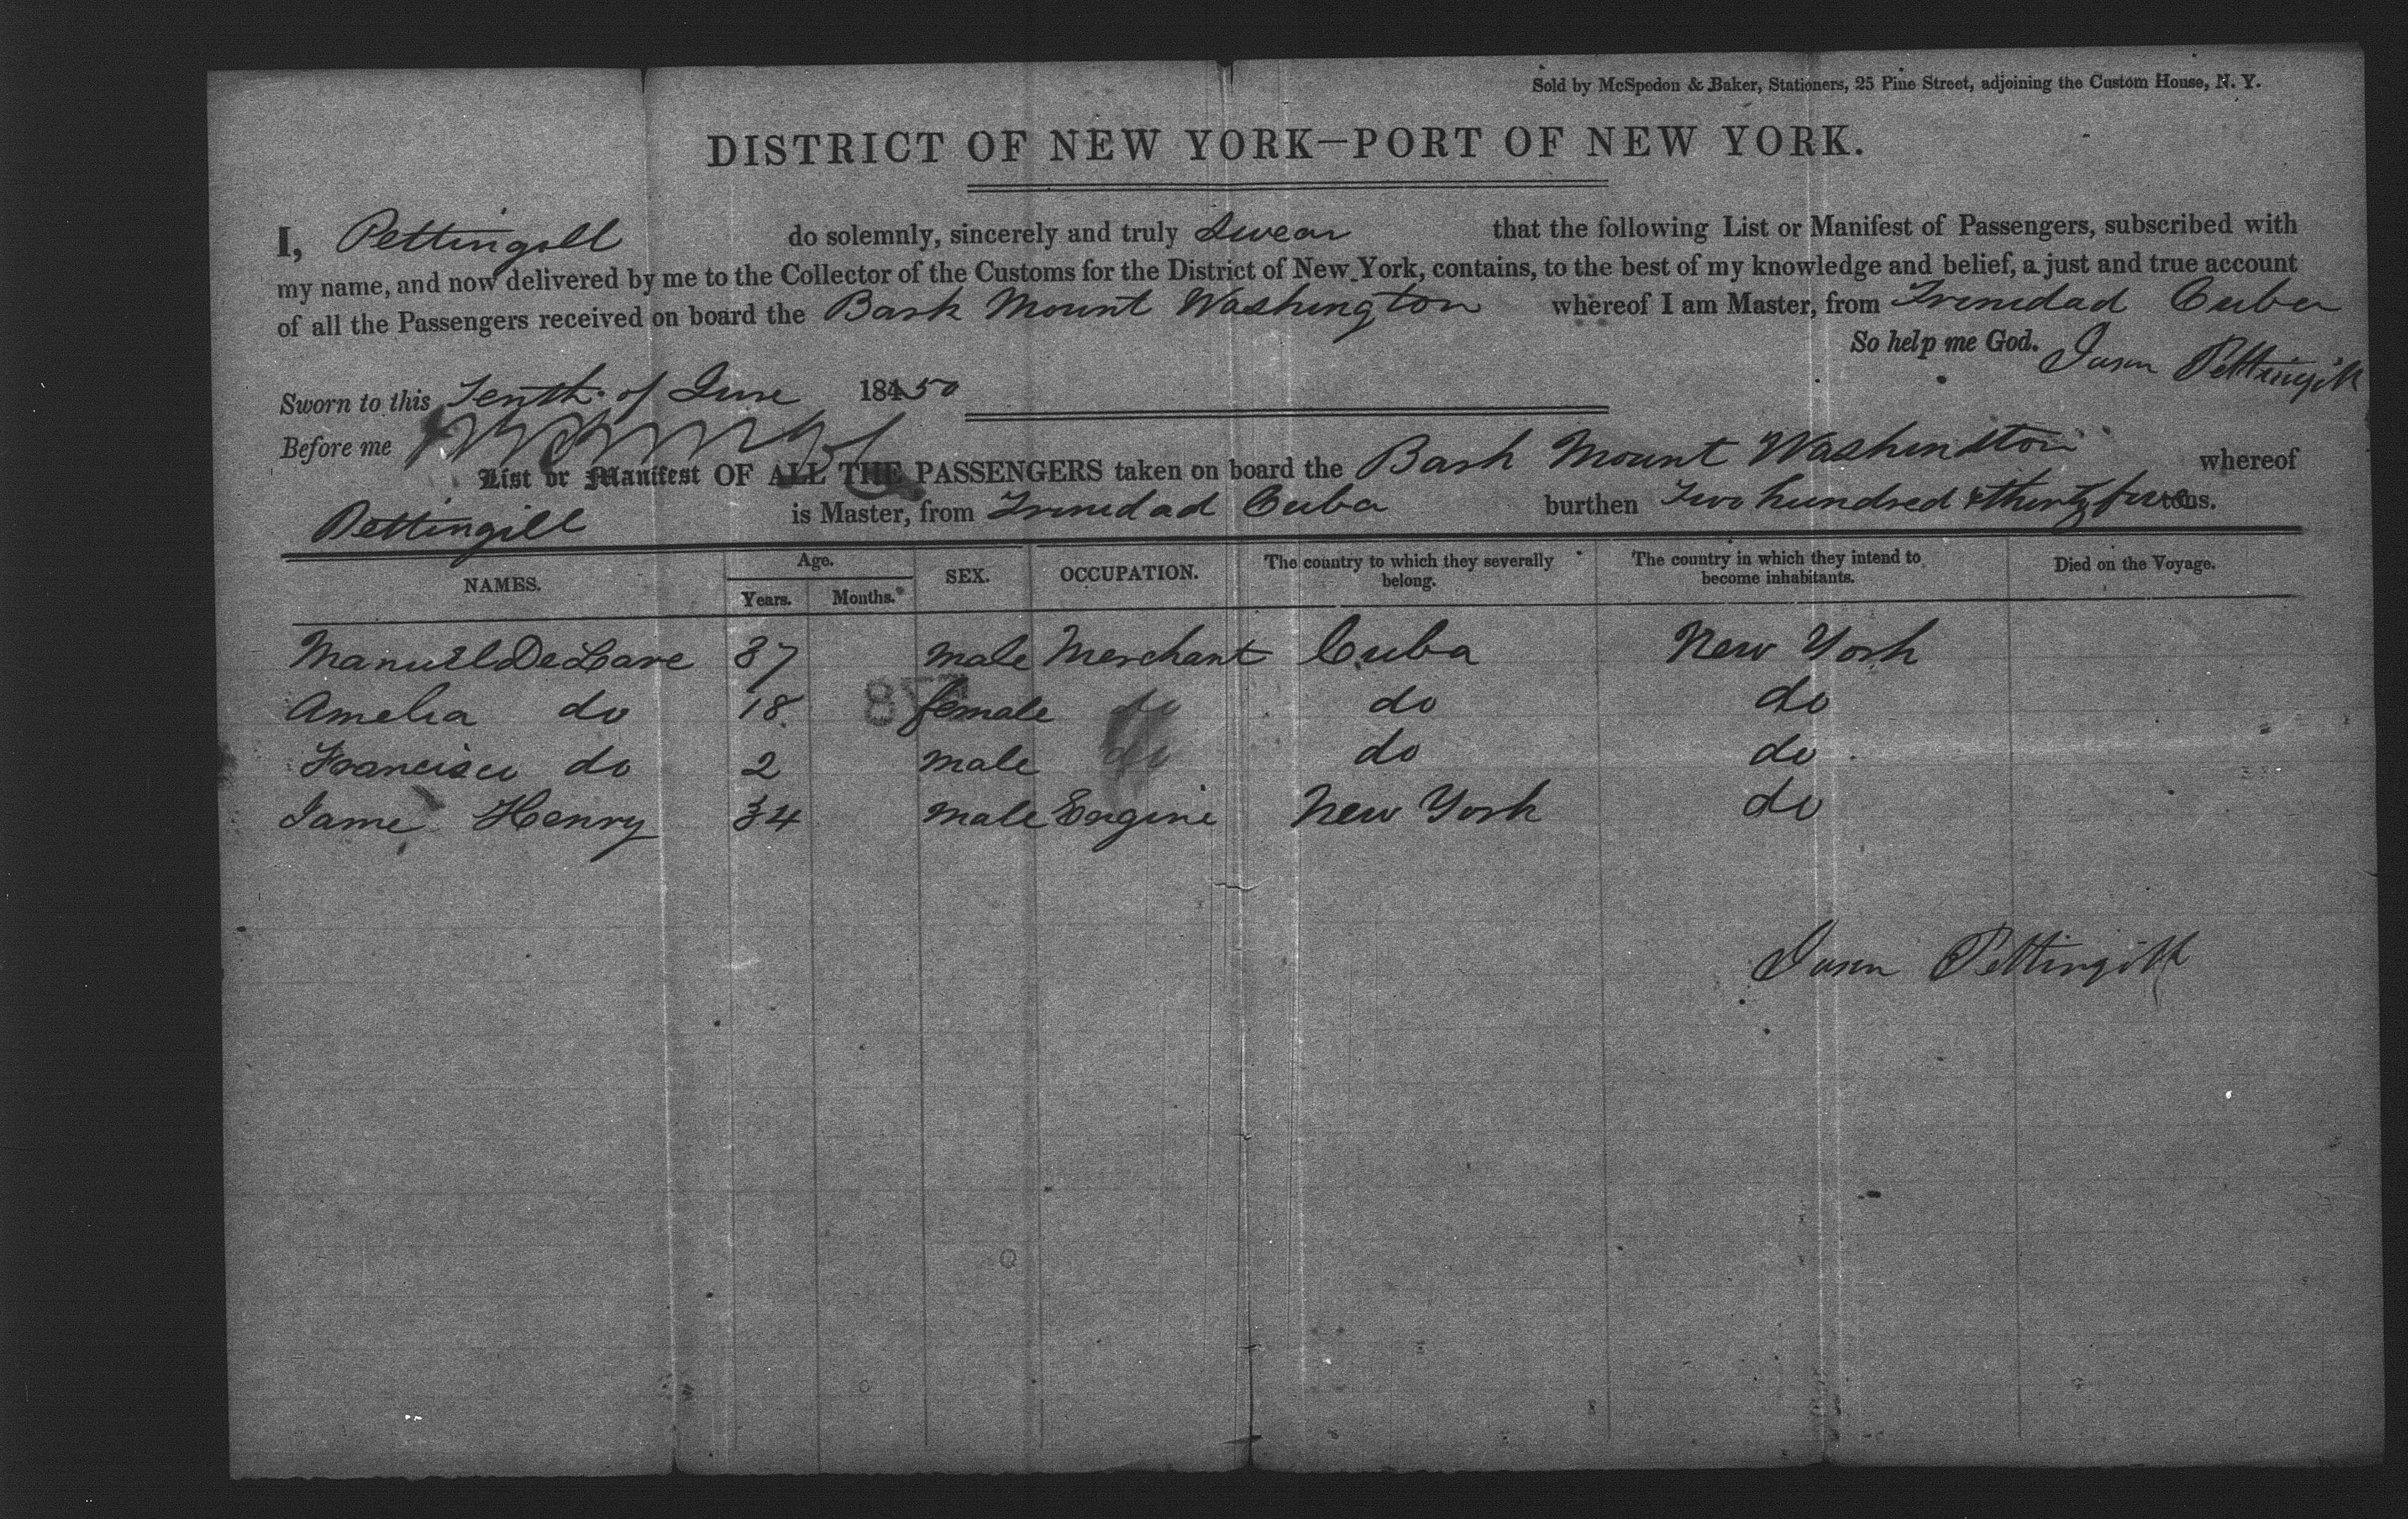 Sold by McSpedon & Baker, Stationers, 25 Pine Street, adjoining the Custom House, N. Y.
DISTRICT OF NEW YORK—PORT OF NEW YORK.
I, Pettingill do solemnly, sincerely and truly Swear that the following List or Manifest of Passengers, subscribed with
my name, and now delivered by me to the Collector of the Customs for the District of New York, contains, to the best of my knowledge and belief, a just and true account
of all the Passengers received on board the Bark Mount Washington whereof I am Master, from Trinidad Cuba
So help me God. Pettingill
Sworn to this Tenth of June 18450
Before me
List or Manifest OF ALL THE PASSENGERS taken on board the Bark Mount Washington whereof
Pettingill is Master, from Trinidad Cuba burthen Two hundred & thirty five tons.
NAMES. Age. Years. Months. SEX. OCCUPATION. The country to which they severally belong. The country in which they intend to become inhabitants. Died on the Voyage.
Manuel De Lare 37 male Merchant Cuba New York
Amelia do 18 female do do do
Francisco do 2 male do do do
Jame Henry 34 male Engine New York do
Pettingill